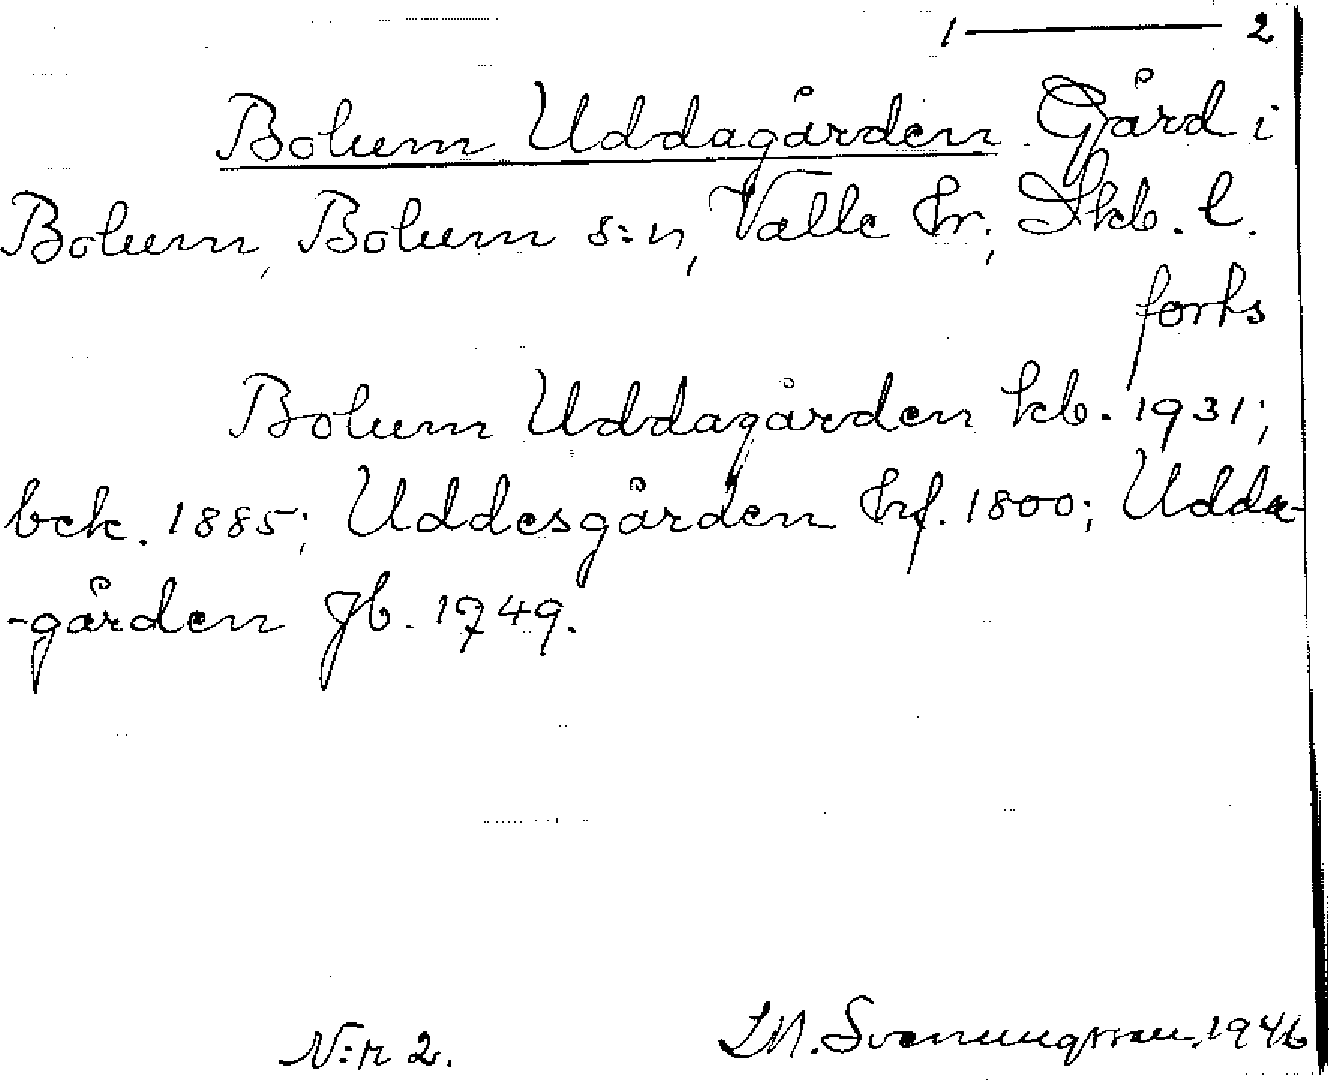 1 — 2
Bolum Uddagården. Gård i
Bolum, Bolum s:n, Valle hr, Skb. l.
forts
Bolum Uddagården kb. 1931;
bek. 1885; Uddesgården hrf. 1800; Udda-
-gården Jb. 1749.
N:r 2. I.M. Svenungsson 1946